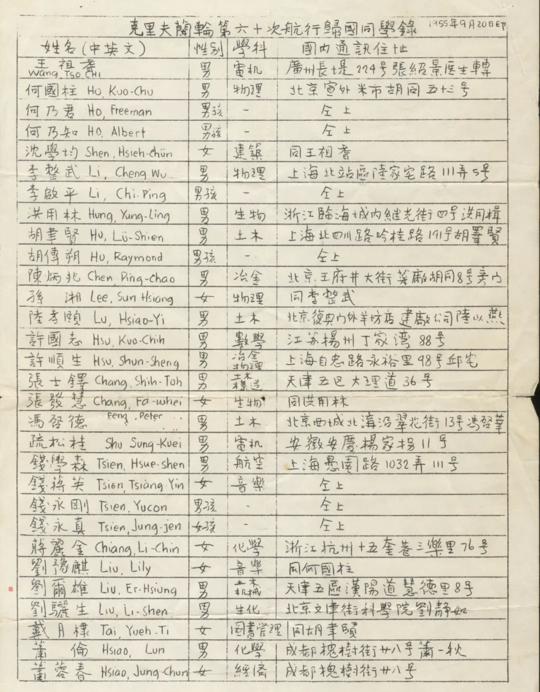 克里夫蘭輪第六十次航行歸國同學錄 1955年9月20日EP
姓名(中英文) 性別 學科 國內通訊住址
王祖耆 Wang, Tso Chi 男 電机 廣州長堤224号張紹景医生轉
何國柱 Ho, Kuo-Chu 男 物理 北京宣外米市胡同五十三号
何乃君 Ho, Freeman 男孩 - 仝上
何乃如 Ho, Albert 男孩 - 仝上
沈學均 Shen, Hsieh-Chün 女 建築 同王祖耆
李整武 Li, Cheng Wu 男 物理 上海北站區陸家宅路111弄5号
李啟平 Li, Chi-Ping 男孩 - 仝上
洪用林 Hung, Yung-Ling 男 生物 浙江臨海城內继光街四号洪用楫
胡聿賢 Hu, Lü-Shien 男 土木 上海北四川路吟桂路191号胡睪賢
胡傳朔 Hu, Raymond 男孩 - 仝上
陳炳兆 Chen Ping-Chao 男 冶金 北京王府井大街 胡同8号旁门
孫湘 Lee, Sun Hsiang 女 物理 同李整武
陸孝頤 Lu, Hsiao-Yi 男 土木 北京復興门外羊坊店建廠公司陸以燕
許國志 Hsu, Kuo-Chih 男 數學 江苏揚州丁家湾88号
許順生 Hsu, Shun-Sheng 男 冶金物理 上海自忠路永裕里98号邱宅
張士鐸 Chang, Shih-Toh 男 土木構造 天津五區大理道36号
張發慧 Chang, Fa-Whei 女 生物 同洪用林
馮啓德 Feng, Peter 男 土木 北京西城北溝沿翠花街13号馮啓華
疏松桂 Shu Sung-Kuei 男 電机 安徽安慶楊家拐11号
錢學森 Tsien, Hsue-shen 男 航空 上海愚園路1032弄111号
錢蔣英 Tsien, Tsiang Yin 女 音樂 仝上
錢永剛 Tsien, Yucon 男孩 - 仝上
錢永真 Tsien, Jung-jen 女孩 - 仝上
蔣麗金 Chiang, Li-Chin 女 化學 浙江杭州十五奎巷三樂里76号
劉豫麒 Liu, Lily 女 音樂 同何國柱
劉爾雄 Liu, Er-Hsiung 男 土木机械 天津五區漢陽道慧德里8号
劉驪生 Liu, Li-shen 男 生化 北京文津街科學院劉靜如
戴月棣 Tai, Yueh-Ti 女 図書管理 同胡聿賢
蕭倫 Hsiao, Lun 男 化學 成都槐樹街廿八号蕭一秋
蕭蓉春 Hsiao, Jung-Chun 女 經濟 成都槐樹街廿八号